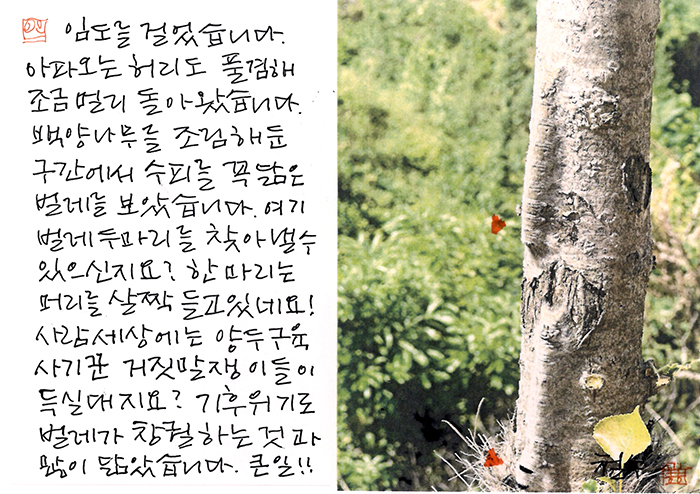 임도를 걸었습니다.
아파오는 허리도 풀겸해
조금 멀리 돌아왔습니다.
백양나무를 조림해둔
구간에서 수피를 꼭 닮은
벌레를 보았습니다. 여기
벌레 두마리를 찾아낼수
있으신지요? 한 마리는
머리를 살짝 들고있네요!
사람세상에는 양두구육
사기꾼 거짓말쟁이들이
득실대지요? 기후위기로
벌레가 창궐하는 것과
많이 닮았습니다. 큰일!!